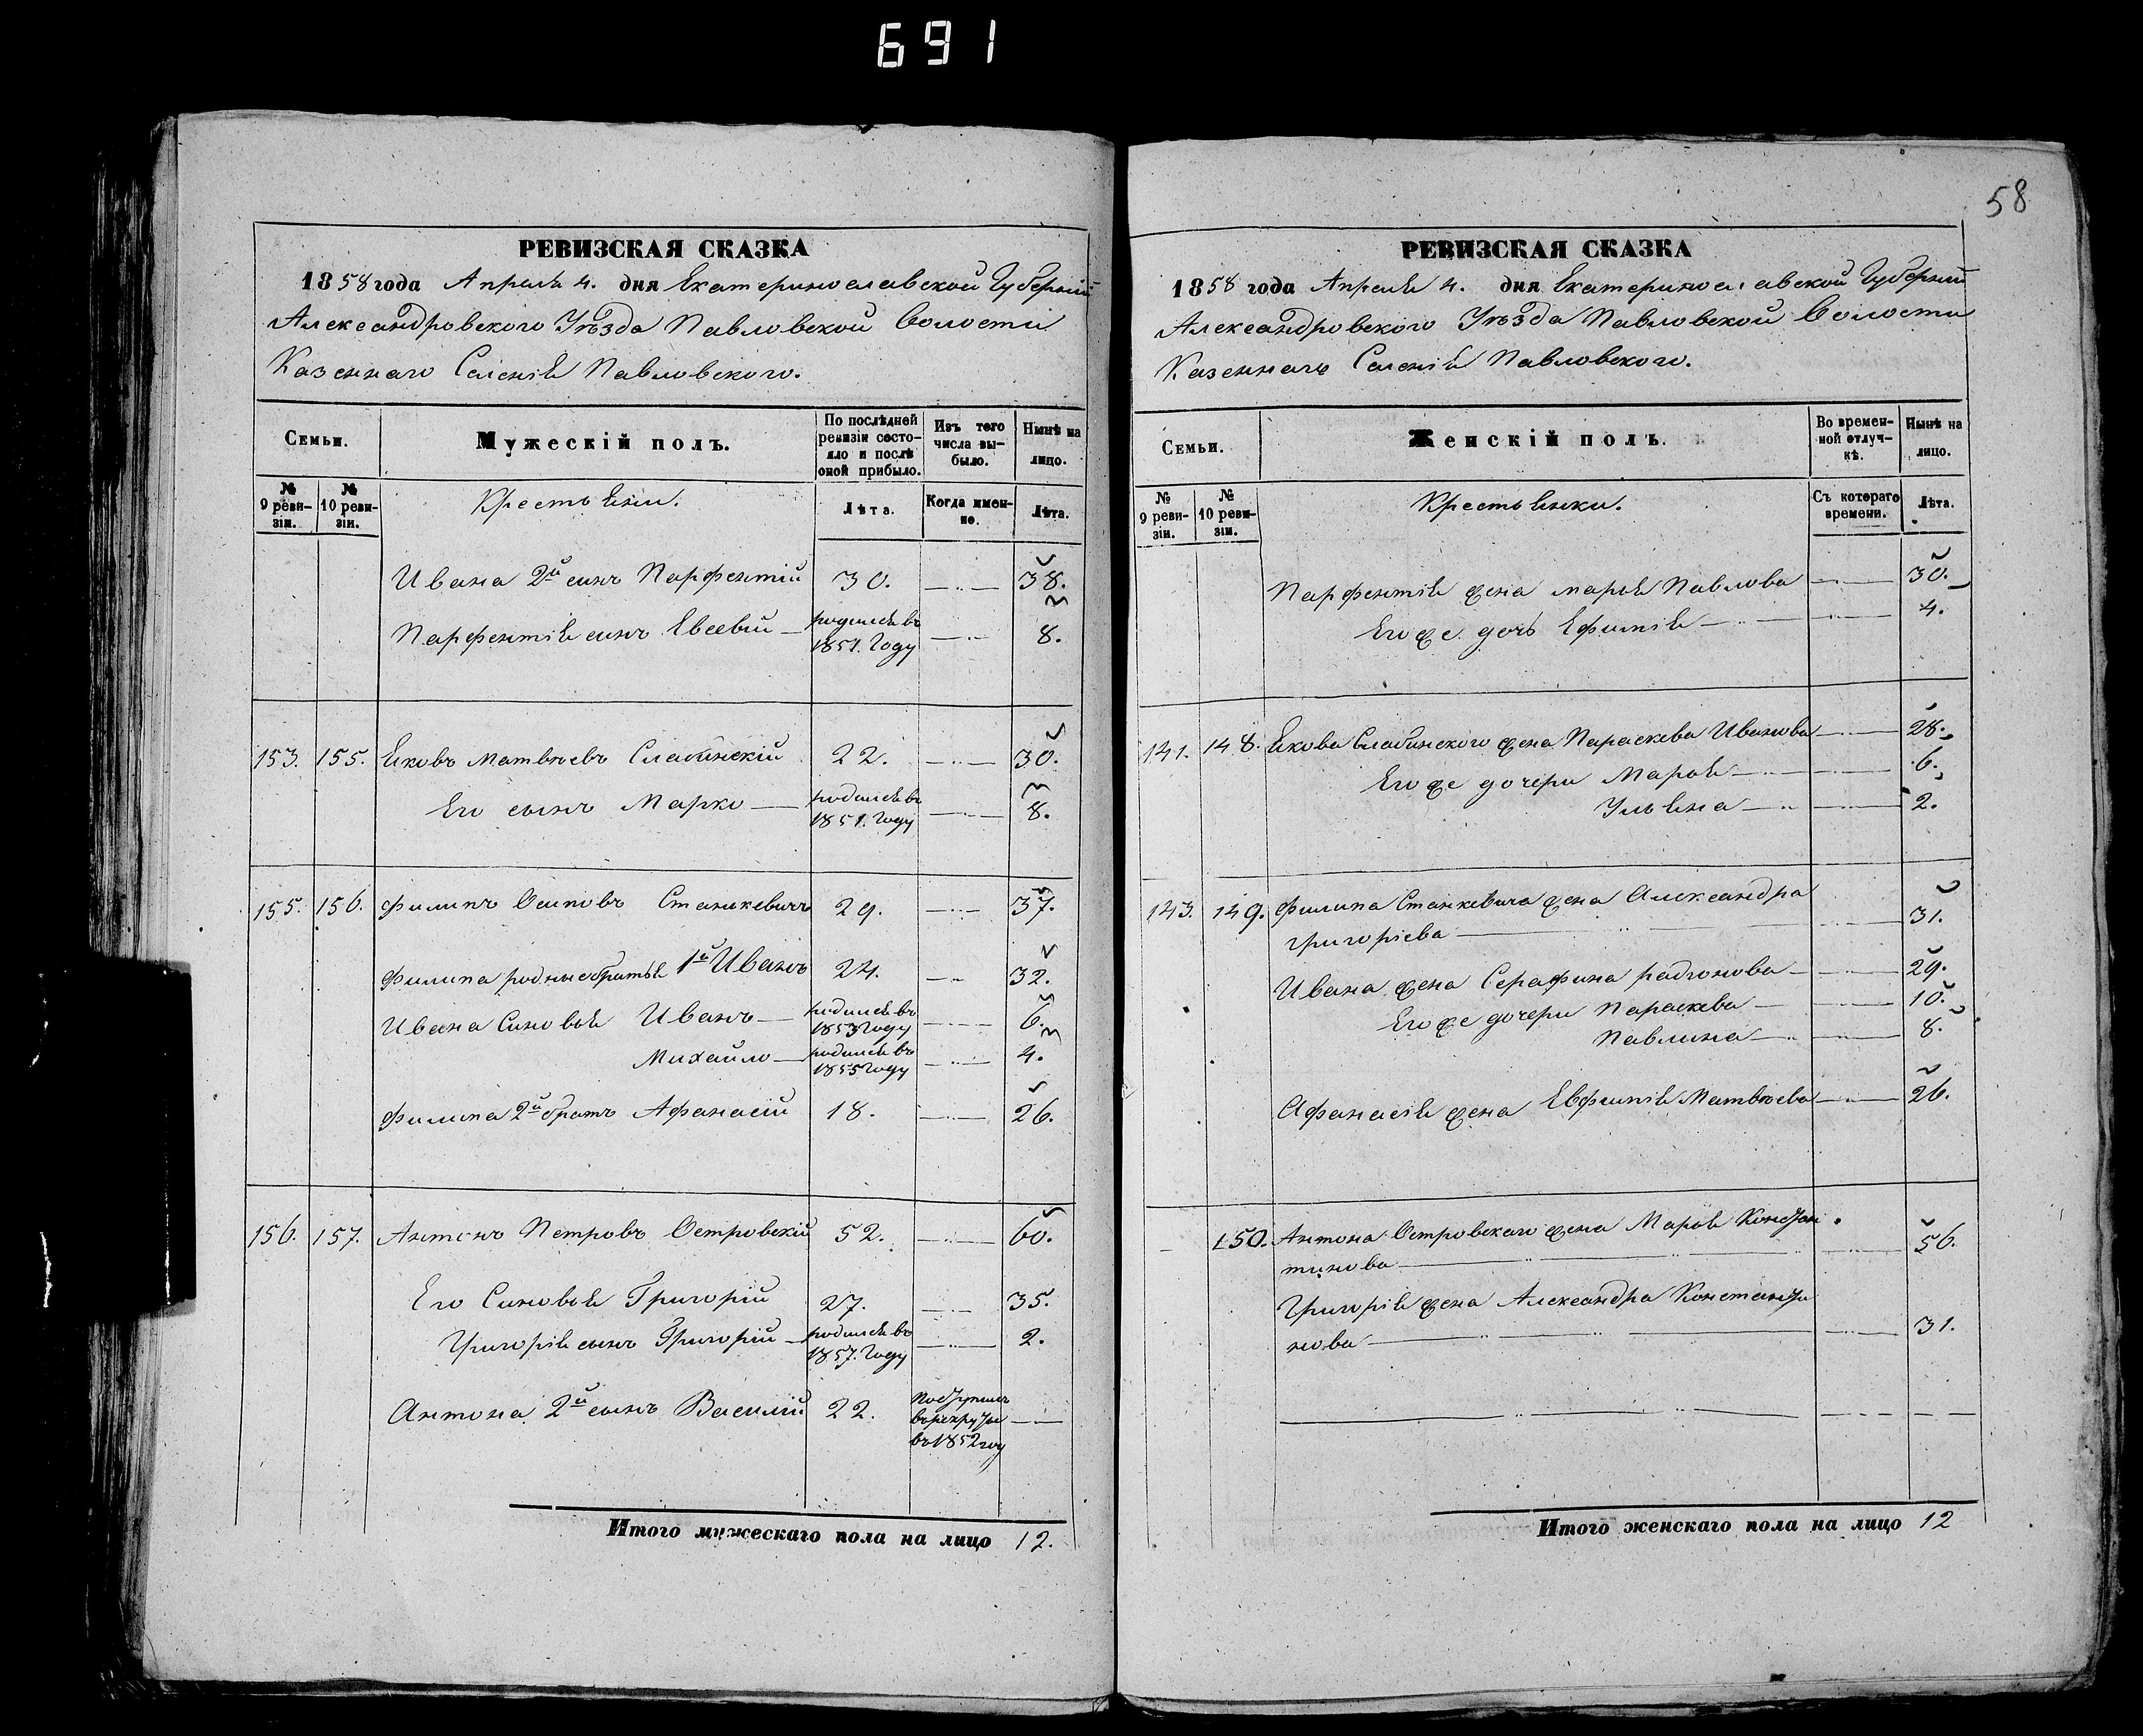 691
58
РЕВИЗСКАЯ СКАЗКА
1858 года Апреля 4. дня Екатеринославской Губерніи
Александровского Уѣзда Павловской Волости
Казеннаго Селенія Павловского.
Семьи. Мужескій полъ. По послѣдней ревизіи состояло и послѣ оной прибыло. Изъ того числа выбыло. Нынѣ на лицо.
№ 9 ревизіи. № 10 ревизіи. Крестьяни. Лѣта. Когда именно. Лѣта.
Ивана 2й сынъ Парфентій 30. 38.
Парфентія сынъ Евсевій родился въ 1851. Году 8.
153. 155. Яковъ Матвѣевъ Слабинскій 22. 30.
Его сынъ Марко родился въ 1851. Году 8.
155. 156. Филипъ Осиповъ Станкевичъ 29. 37.
Филипа родные братья 1й Иванъ 24. 32.
Ивана Синовья Иванъ родился въ 1853 Году 6.
Михайло родился въ 1855 Году 4.
Филипа 2й братъ Афанасій 18. 26.
156. 157. Антонъ Петровъ Островскій 52. 60.
Его Синовья Григорій 27. 35.
Григорія сынъ Григорій родился въ 1857. Году 2.
Антона 2й сынъ Василій 22. въ 1852 году
Итого мужескаго пола на лицо 12.
РЕВИЗСКАЯ СКАЗКА
1858 года Апреля 4. дня Екатеринославской Губерніи
Александровского Уѣзда Павловской Волости
Казеннаго Селенія Павловского.
Семьи. Женскій полъ. Во временной отлучкѣ. Нынѣ на лицо.
№ 9 ревизіи. № 10 ревизіи. Крестьянки. Съ котораго времени. Лѣта.
Парфентія жена Марья Павлова 30.
Его же дочь Ефимія 4.
141. 148. Якова Слабинского жена Параскева Иванова 28.
Его же дочери Марья 6.
Ульяна 2.
143. 149. Филипа Станкевича жена Александра
Григоріева 31.
Ивана жена Серафина Радіонова 29.
Его же дочери Параскева 10.
Павлина 8.
Афанасія жена Евфимія Матвѣева 26.
150. Антона Островскаго жена Марья Констан
тинова 56.
Григорія жена Александра Константи
нова 31.
Итого женскаго пола на лицо 12